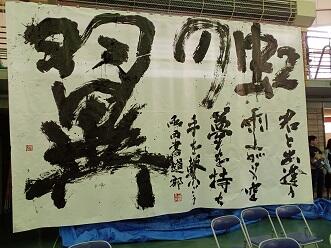 虹の翼
君と出逢う
雨上がり空
夢を持ち
手を繋ごう
書道部